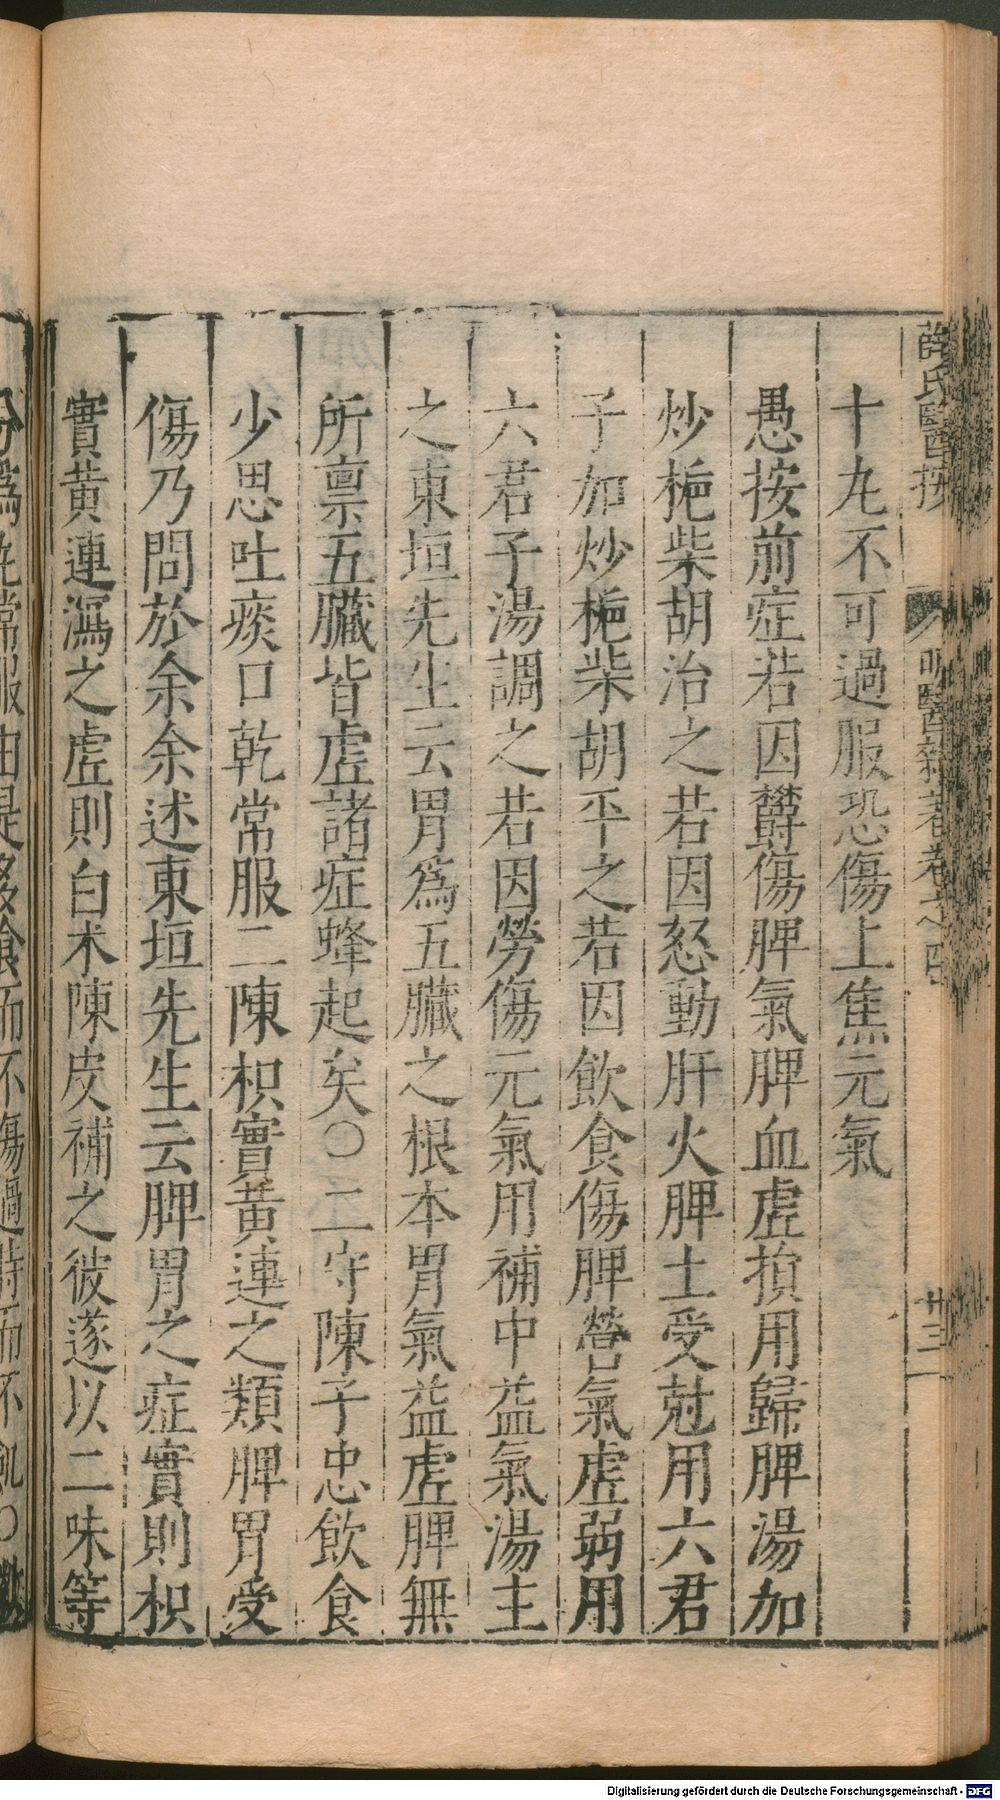 薛氏醫按 明醫雜著卷之四 卅三
十丸不可過服恐傷上焦元氣
愚按前症若因欝傷脾氣脾血虛損用歸脾湯加
炒梔柴胡治之若因怒動肝火脾土受尅用六君
子加炒梔柴胡平之若因飲食傷脾營氣虛弱用
六君子湯調之若因勞傷元氣用補中益氣湯主
之東垣先生云胃爲五臟之根本胃氣益虛脾無
所禀五臟皆虛諸症蜂起矣〇二守陳子忠飲食
少思吐痰口乾常服二陳枳實黃連之類脾胃受
傷乃問於余余述東垣先生云脾胃之症實則枳
實黃連瀉之虛則白术陳皮補之彼遂以二味等
分爲丸常服由是多飡而不傷過時而不飢〇
Digitalisierung gefördert durch die Deutsche Forschungsgemeinschaft - DFG